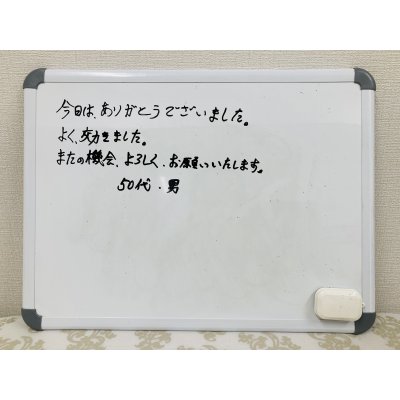 今日は、ありがとうございました。
よく、効きました。
またの機会、よろしく、お願いいたします。
50代・男